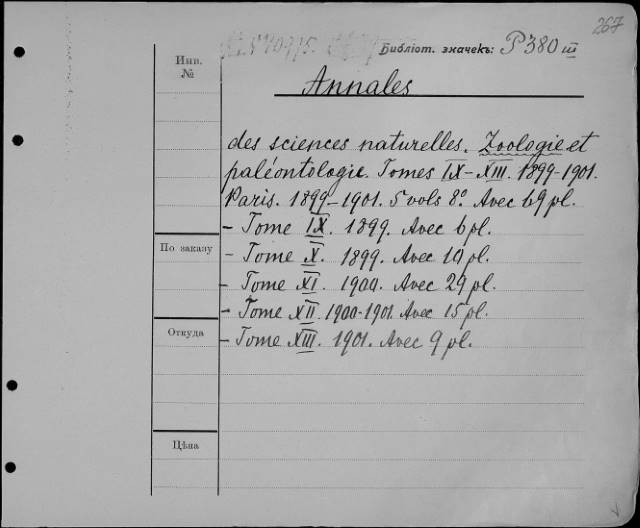 267
Библіот. значекъ: P380 III
Инв.
№
Annales
des sciences naturelles. Zoologie et
paléontologie. Tomes IX-XIII. 1899-1901.
Paris. 1899-1901. 5 vols 8º. Avec 69 pl.
- Tome IX. 1899. Avec 6 pl.
- Tome X. 1899. Avec 10 pl.
По заказу
- Tome XI. 1900. Avec 29 pl.
- Tome XII. 1900-1901. Avec 15 pl.
Откуда
- Tome XIII. 1901. Avec 9 pl.
Цѣна